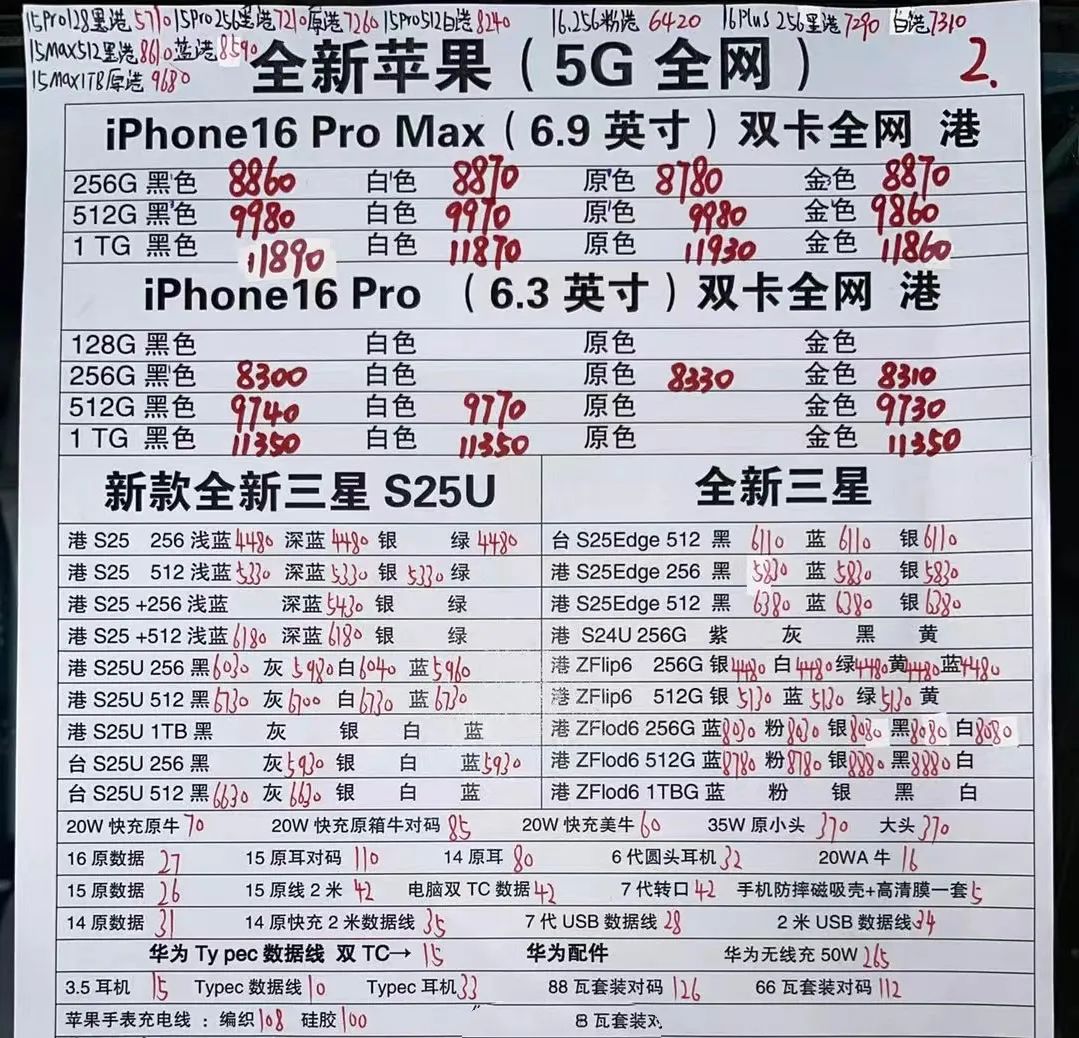 15Pro128墨港5710 15Pro256墨港7210原港7260 15Pro512白港8240 16.256粉港6420 16Plus 256墨港7290 白港7310
15Max512墨港8610蓝港8590
15Max1TB原港9680
全新苹果（5G 全网） 2.
iPhone16 Pro Max（6.9 英寸）双卡全网 港
256G 黑色 8860 白色 8870 原色 8780 金色 8870
512G 黑色 9980 白色 9970 原色 9980 金色 9860
1 TG 黑色 11890 白色 11870 原色 11930 金色 11860
iPhone16 Pro （6.3 英寸）双卡全网 港
128G 黑色 白色 原色 金色
256G 黑色 8300 白色 原色 8330 金色 8310
512G 黑色 9740 白色 9770 原色 金色 9730
1 TG 黑色 11350 白色 11350 原色 金色 11350
新款全新三星 S25U
港 S25 256 浅蓝4480 深蓝4480 银 绿4480
港 S25 512 浅蓝5330 深蓝5330 银5330绿
港 S25 +256 浅蓝 深蓝5430 银 绿
港 S25 +512 浅蓝6180 深蓝6180 银 绿
港 S25U 256 黑6030 灰5980白6040 蓝5960
港 S25U 512 黑6730 灰6700 白6730 蓝6730
港 S25U 1TB 黑 灰 银 白 蓝
台 S25U 256 黑 灰5930 银 白 蓝5930
台 S25U 512 黑6630 灰6630 银 白 蓝
全新三星
台 S25Edge 512 黑 6110 蓝 6110 银6110
港 S25Edge 256 黑 5830 蓝 5830 银5830
港 S25Edge 512 黑 6380 蓝 6380 银6380
港 S24U 256G 紫 灰 黑 黄
港 ZFlip6 256G 银4480 白4480绿4480黄4480蓝4480
港 ZFlip6 512G 银 5130 蓝 5130 绿5130 黄
港 ZFlod6 256G 蓝8030 粉8030 银8080 黑8080 白8080
港 ZFlod6 512G 蓝8780 粉8780 银8880 黑8880白
港 ZFlod6 1TBG 蓝 粉 银 黑 白
20W 快充原牛70 20W 快充原箱牛对码85 20W 快充美牛60 35W 原小头370 大头370
16 原数据 27 15 原耳对码 110 14 原耳 80 6 代圆头耳机32 20WA 牛 16
15 原数据 26 15 原线 2 米 42 电脑双 TC 数据42 7 代转口42 手机防摔磁吸壳+高清膜一套5
14 原数据 31 14 原快充 2 米数据线35 7 代 USB 数据线28 2 米 USB 数据线34
华为 Ty pec 数据线 双 TC→ 15 华为配件 华为无线充 50W265
3.5 耳机 15 Typec 数据线10 Typec 耳机33 88 瓦套装对码126 66 瓦套装对码112
苹果手表充电线 ：编织108 硅胶100 8 瓦套装对